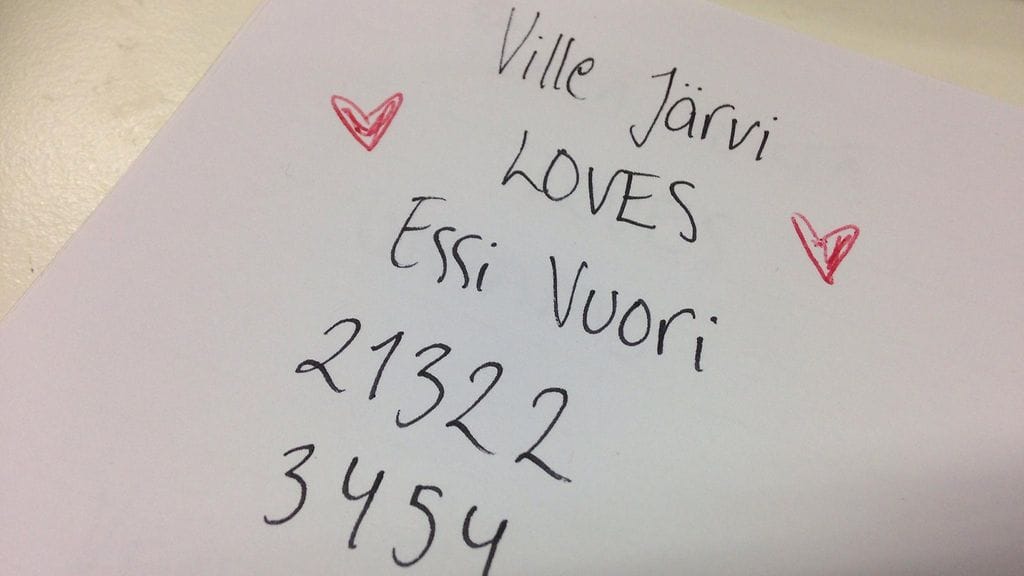 Ville Järvi
LOVES
Essi Vuori
21322
3454